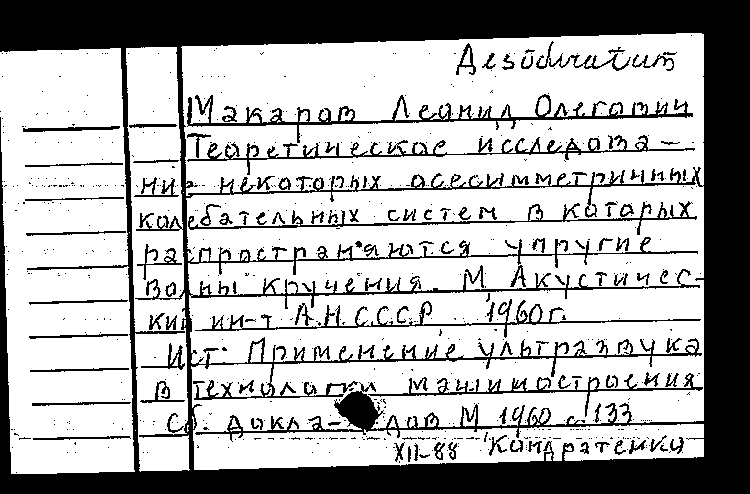 Desideratum
Макаров Леонид Олегович
Теоретическое исследова-
ние некоторых осесимметричных
колебательных систем в которых
распространяются упругие
волны кручения. М, Акустичес-
кий ин-т А.Н.С.С.С.Р. 1960г.
Ист: Применение ультразвука
в технологии машиностроения
Сб. докла-дов М 1960 с.133
XII-88 Кондратенко